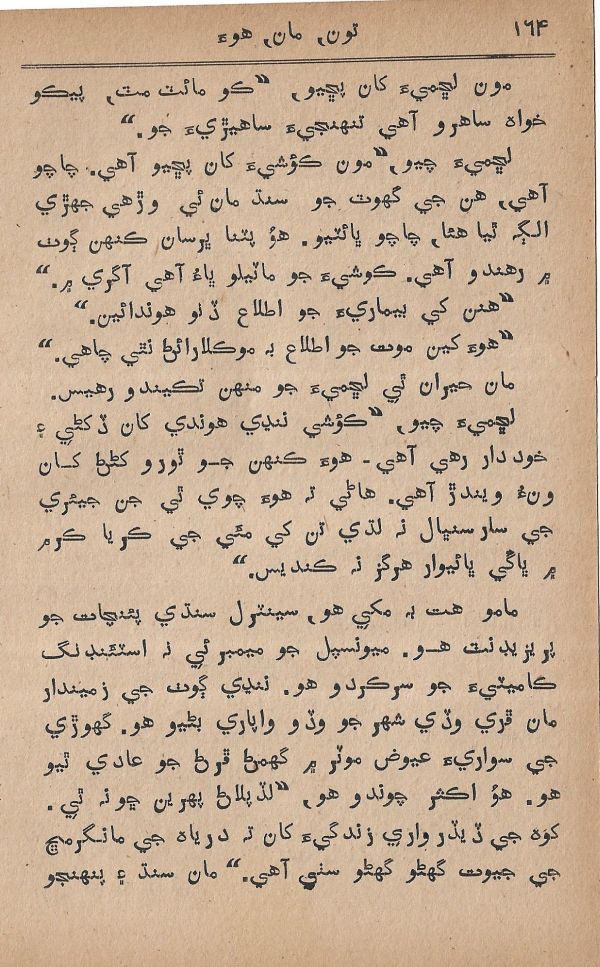 ۱۶۴ تون، مان، هوءَ
مون لڇميءَ کان پڇيو، ”ڪو مائٽ مٽ، پيڪو
خواه ساهرو آهي تنهنجيءَ ساهيڙيءَ جو.“
لڇميءَ چيو، ”مون ڪؤشيءَ کان پڇيو آهي. چاچو
آهي، هن جي گهوٽ جو سنڌ مان ئي وڙهي جهڙي
الڳ ٿيا هئا، چاچو ڀائٽيو. هؤ پٽنا ڀرسان ڪنهن ڳوٺ
۾ رهندو آهي. ڪوشيءَ جو ماٽيلو ڀاءُ آهي آگري ۾.“
”هنن کي بيماريءَ جو اطلاع ڏنو هوندائين.“
”هوءَ کين موت جو اطلاع بہ موڪلارائڻ نٿي چاهي.“
مان حيران ٿي لڇميءَ جو منهن تڪيندو رهيس.
لڇميءَ چيو، ”ڪؤشي ننڍي هوندي کان ڏکڻي ۽
خوددار رهي آهي۔ هوءَ ڪنهن جو ٿورو کڻڻ کان
ونءُ ويندڙ آهي. هاڻي تہ هوءَ چوي ٿي جن جيئري
جي سار سنڀال نہ لڌي تن کي مئي جي ڪريا ڪرم
۾ ڀاڱي ڀائيوار هرگز نہ ڪنديس.“
مامو هت بہ مکي هو، سينٽرل سنڌي پئنچات جو
پريزيڊنٽ هو. ميونسپل جو ميمبر ئي نہ اسٽئنڊنگ
ڪاميٽيءَ جو سرڪردو هو. ننڍي ڳوٺ جي زميندار
مان ڦري وڏي شهر جو وڏو واپاري بڻيو هو. گهوڙي
جي سواريءَ عيوض موٽر ۾ گهمڻ ڦرڻ جو عادي ٿيو
هو. هؤ اڪثر چوندو هو، ”لڏپلاڻ پهرين ڇو نہ ٿي.
کوه جي ڏيڏر واري زندگيءَ کان تہ درياه جي مانگرمڇ
جي جيوت گهڻو گهڻو سٺي آهي.“ مان سنڌ ۽ پنهنجو